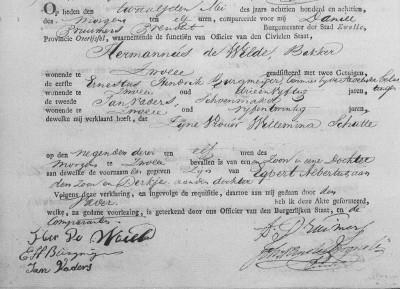 Op heden den twaalfden Mei des jaars achttien honderd en achttien, des
morgens ten elf uren, compareerde voor mij Daniel
Pruimers Arendsz Burgemeester der Stad Zwolle,
Provincie Overijssel, waarnemende de functiën van Officier van den Civielen Staat,
Hermannus de Wilde, Bakker
wonende te Zwolle geadsisteerd met twee Getuigen,
de eerste Ernestus Hendrik commies bij de
wonende te Zwolle oud drieenvijftig jaren,
de tweede Jan Vaders, Schoenmaker
wonende te Zwolle oud vijfentwintig jaren,
dewelke mij verklaard heeft, dat
Zijne Vrouw Willemina Schutte
op den negenden dezer ten elf uren des
morgens te Zwolle bevallen is van een Zoon en eene Dochter
aan dewelke de voornaam en gegeven zijn van Egbert Albertus aan
den Zoon en Derkje aan de dochter
Volgens deze verklaring, en ingevolge de requisitie, daartoe aan mij gedaan door den
Vader heb ik deze Akte geformeerd,
welke, na gedane voorlezing, is geteekend door ons Officier van den Burgerlijken Staat, en de
Comparanten
Her De Wilde
E H
Jan Vaders
D Pruimers